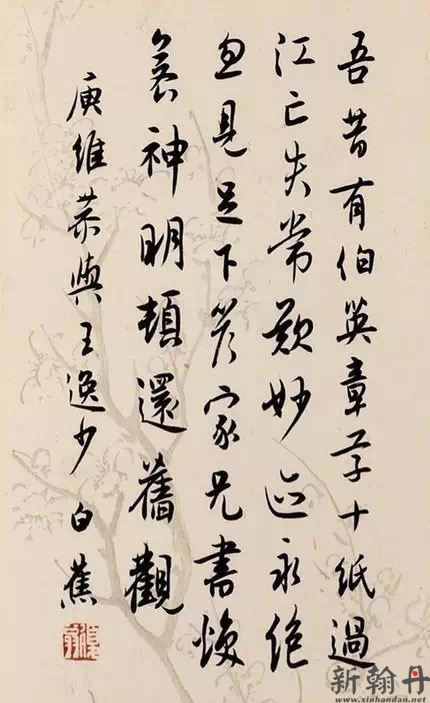 吾昔有伯英章草十紙過
江亡失常歎妙迹永絕
忽見足下答家兄書煥
若神明頓還舊觀
庾維恭與王逸少 白蕉
新翰丹
www.xinhandan.net